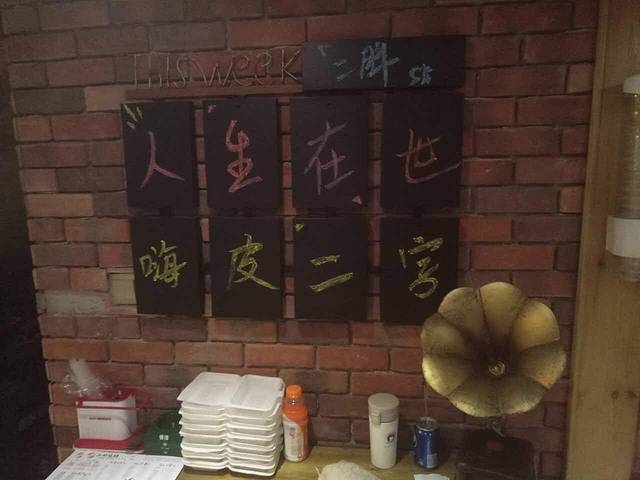 This week
二胖
人生在世
嗨皮二字